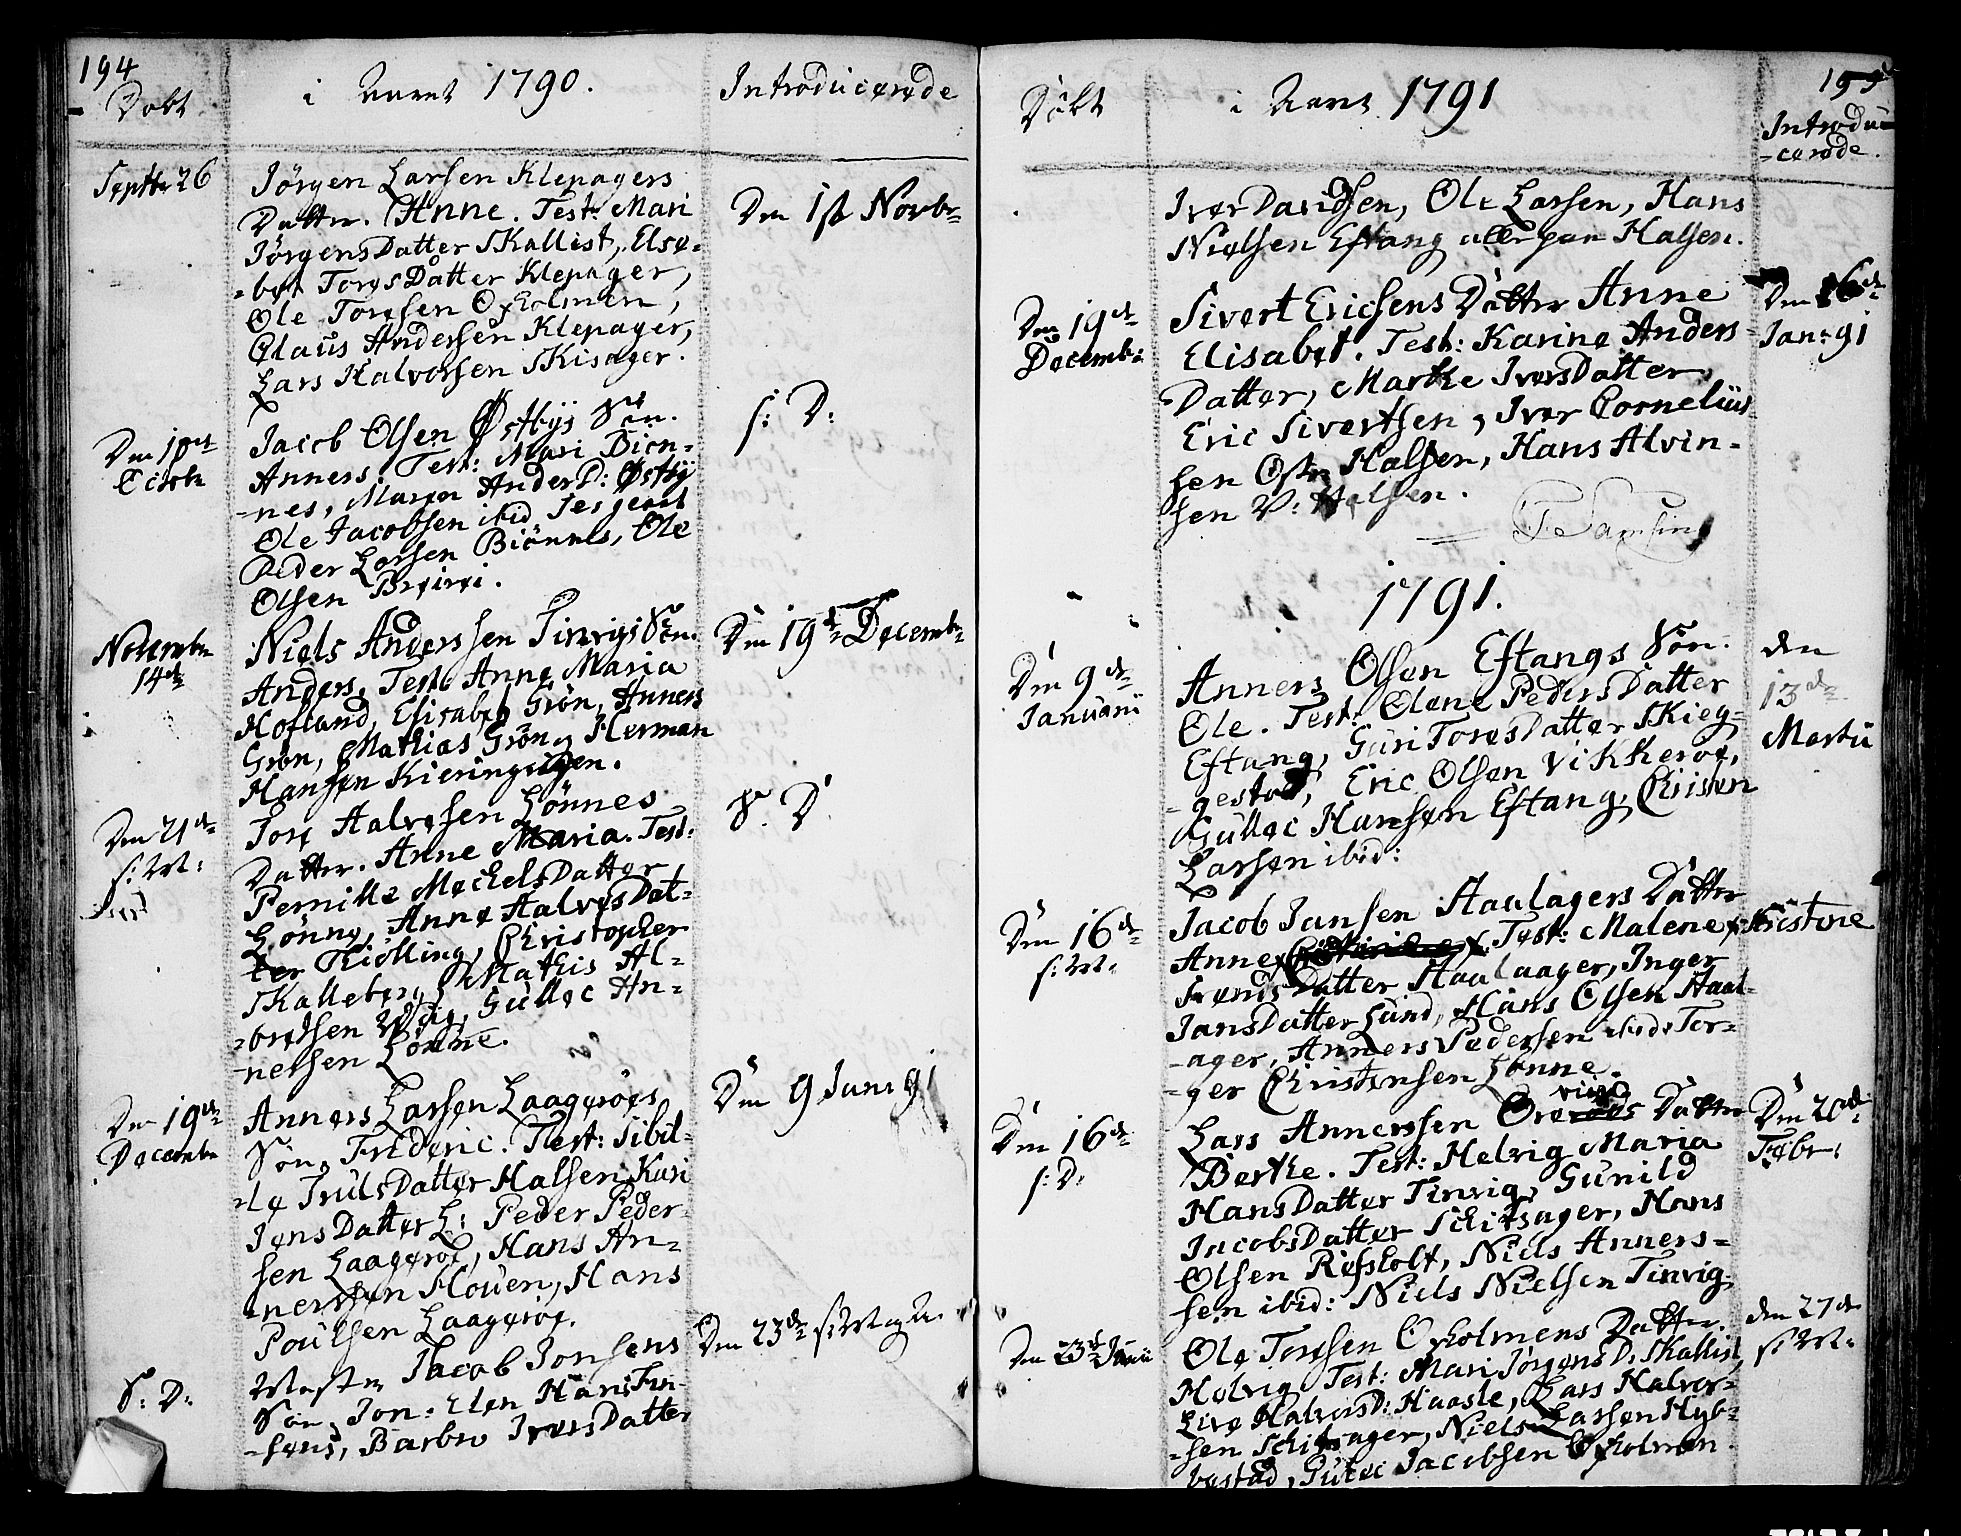 194
Døbt
i Aaret 1790.
Introducerede
Septbr 26
Jörgen Larsen Klepagers
Datter. Anne. Test: Mari
JörgensDatter Skallist, Else-
-bet ToresDatter Klepager,
Ole Toresen Oxholmen,
Claus Andersen Klepager,
Lars Halvorsen Skisager.
Den 1st Novbr
Den
Octobr
Jacob Olsen Østbys Søn.
Anners. Test: Mari Biön-
-nes, Maren AndersD: Østby
Ole Jacobsen ibid
Peder Larsen Biönnes, Ole
Olsen
s: D:
Novembr
14de
Niels Anderssen Tinvigs Søn.
Anders, Test: Anne Maria
Hofland, Elisabet Grön, Anners
Grön, Mathias Grön, Herman
Hansen
Den 19de Decembr
Den 21de
s: M:
Tore Halvorsen Lönnes
Datter. Anne Maria. Test:
Pernille MechelsDatter
Lönne, Anne HalvorsDat-
ter Kiölling, Christopher
Skalleberg, Mathis Al-
-bretsen Gulloc An-
-nersen Lönne.
S. D.
Den 19de
Decembr
Anners Larsen Laagerøes
Søn, Frideric. Test: Sibil-
-le TrulsDatter Halsen, Kari
JonsDatter L: Peder Peder-
sen Laagerøe, Hans An-
-nersen Houen, Hans
Poulsen Laagerøe.
Den 9 Janr 91
S: D:
Mester Jacob Jonsens
Søn, Jon. Elen Hans
-sens, Barbro IversDatter
Den 23de
195
Døbt
i Aaret 1791
Introdu-
-cerede.
Iver Davidsen, Ole Larsen, Hans
Nielsen Eftang alle paa Halsen.
Den 19de
Decembr
Sivert Ericsens Datter Anne
Elisabet. Test: Karine Anders
Datter, Marthe IversDatter,
Eric Sivertsen, Iver Cornelius-
sen Østr Halsen, Hans Alvin-
sen V: Halsen.
Den 16de
Janr 91
1791.
Den 9de
Januarii
Anners Olsen Eftangs Søn.
Ole. Test: Olene PedersDatter
Eftang, Guri ToresDatter Skieg-
-gestad, Eric Olsen Vikkerøe,
Gulloc Hansen Eftang, Christen
Larsen ibid:
den
13de
Martii
Den 16de
s: M:
Jacob Jansen Haalagers Datter
Anne Test: Malene Kristine
SvendsDatter Haalaager, Inger
JansDatter Lund, Hans Olsen Haal-
-ager, Anners Pedersen ibid: Tor-
-ger Christensen Lönne.
Den 16de
s: D:
Lars Annerssen Datter
Berthe. Test: Helvig Maria
HansDatter Tinvig, Gunild
JacobsDatter Schisager, Hans
Olsen Refsholt, Niels Anners-
sen ibid: Niels Nielsen Tinvig
Den 20de
Febr:
Den 23de Janr
Ole Toresen Oxholmens Datter.
Helvig. Test: Mari JörgensD: Skallist
Live HalvorsD: Haasle, Lars Halvor-
-sen Schisager, Niels Larsen Hyb-
-bestad, Gulloc Jacobsen Oxholmen.
den 27de
s: M: